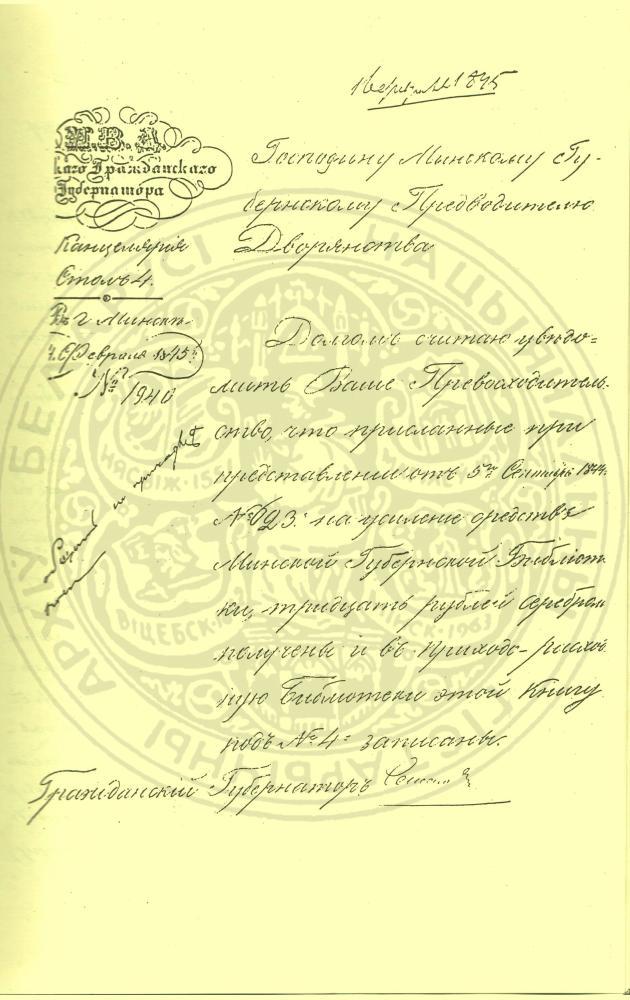 1845
М. В. Д.
каго Гражданскаго
Губернатора
Канцелярія
Столъ 4.
Въ г. Минскѣ
Февраля 1845
№ 1940
Господину Минскому Гу-
бернскому Предводителю
Дворянства
Долгомъ считаю увѣдо-
мить Ваше Превосходитель-
ство, что присланные при
представленіи отъ 5го Сентября 1844
на усиленіе средствъ
Минской Губернской Библіоте-
ки, тридцать рублей серебромъ
получены и въ приходо-расход-
ную Библіотеки этой книгу
подъ № 4 записаны.
Гражданскій Губернаторъ